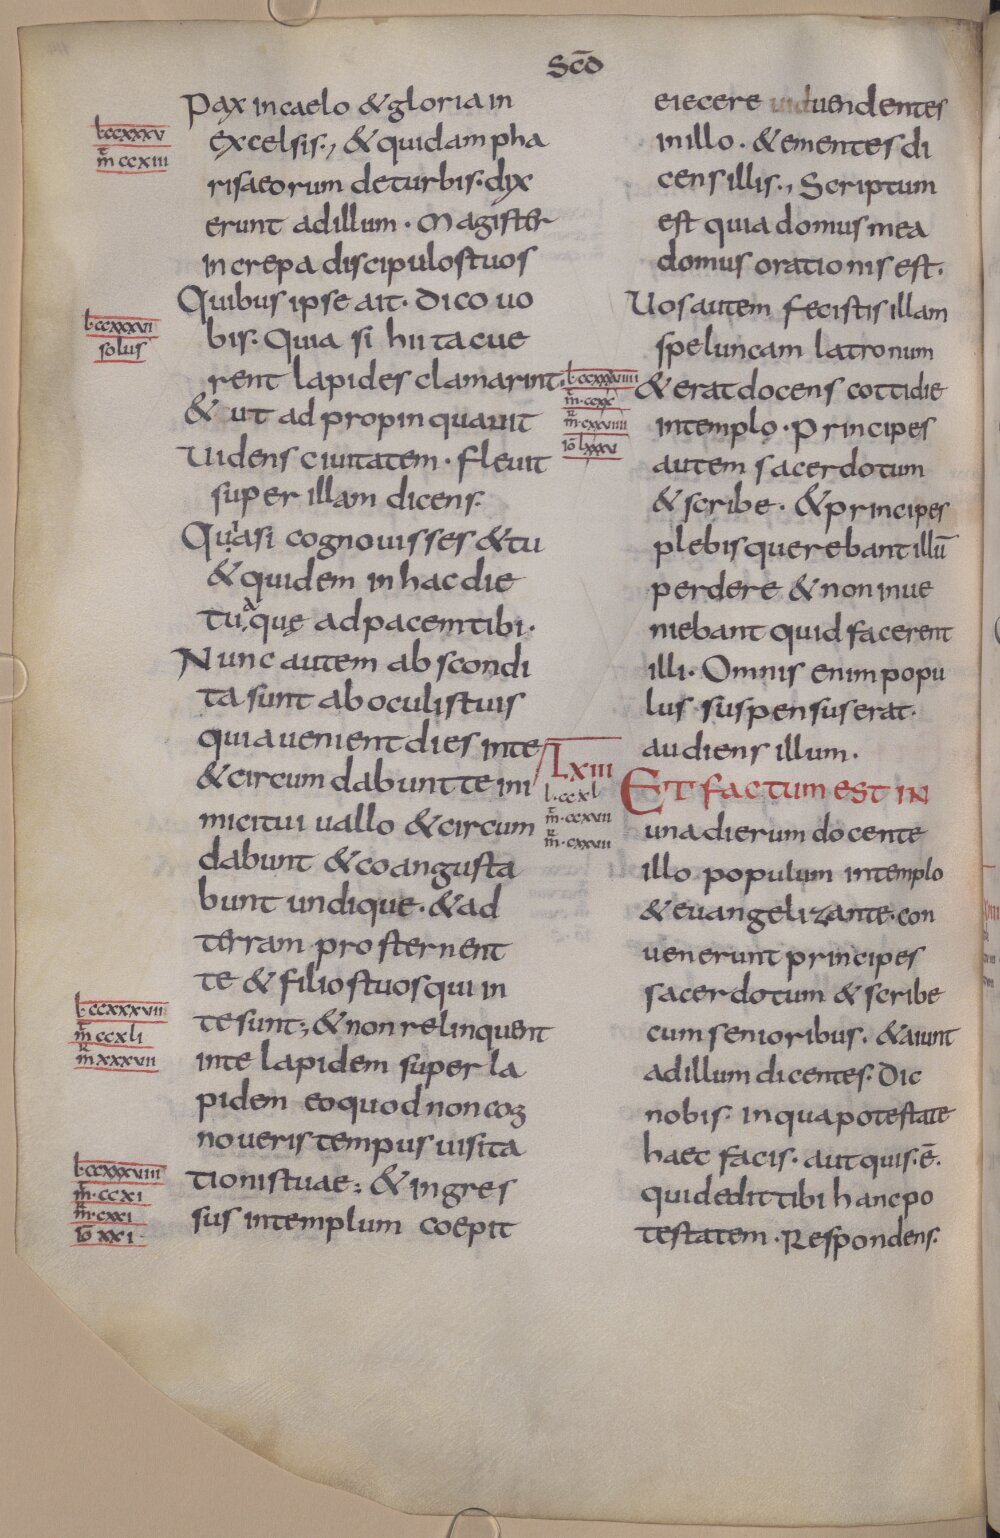 Scd̄
Pax in caelo & gloria in
l·ccxxxv
excelsis·, & quidam pha
m̄ ccxiii
risaeorum de turbis· dix
erunt ad illum · Magister
increpa discipulos tuos
Quibus ipse ait· Dico uo
l·ccxxxvi
solus
bis· Quia si hii tacue
rent lapides clamarint·
& ut adpropinquauit
Uidens ciuitatem · fleuit
super illam dicens·
Quiasi cognouisses & tu
& quidem in hac die
tua que ad pacem tibi·
Nunc autem abscondi
ta sunt ab oculis tuis
quia uenient dies in te
& circumdabunt te ini
mici tui uallo & circum
dabunt & coangusta
bunt undique · & ad
terram prosternent
te & filios tuos qui in
l·ccxxxvii
m̄ ccxli
m̄ xxxvii
te sunt; & non relinquent
in te lapidem super la
pidem eo quod non cog
noueris tempus uisita
l·ccxxxviii
m̄·ccxi
m̄·cxxi
io xxi·
tionis tuae; & ingres
sus in templum coepit
eiecere uiduendentes
in illo · & ementes di
cens illis·, Scriptum
est quia domus mea
domus orationis est·
Uos autem fecistis illam
speluncam latronum
l·ccxxxviiii
m̄·ccxc
m̄·cxxviiii
io lxxxv
& erat docens cottidie
in templo · Principes
autem sacerdotum
& scribe · & principes
plebis querebant illū
perdere & non inue
niebant quid facerent
illi· Omnis enim popu
lus suspensus erat·
audiens illum·
Lxiii
l·ccxl
m̄·ccxvii
m̄·cxxvii
Et factum est in
una dierum docente
illo populum in templo
& euangelizante· con
uenerunt principes
sacerdotum & scribe
cum senioribus· & aiunt
ad illum dicentes· Dic
nobis· in qua potestate
haec facis· aut quis·ē·
qui dedit tibi hanc po
testatem · Respondens·